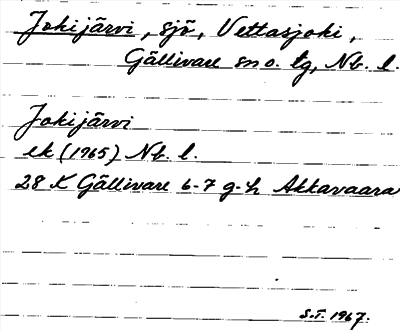 Jokijärvi, sjö, Vettasjoki,
Gällivare sn o. tg, Nb. l.
Jokijärvi
ek (1965) Nb. l.
28 K Gällivare 6-7 g-h Akkavaara
S.T. 1967.